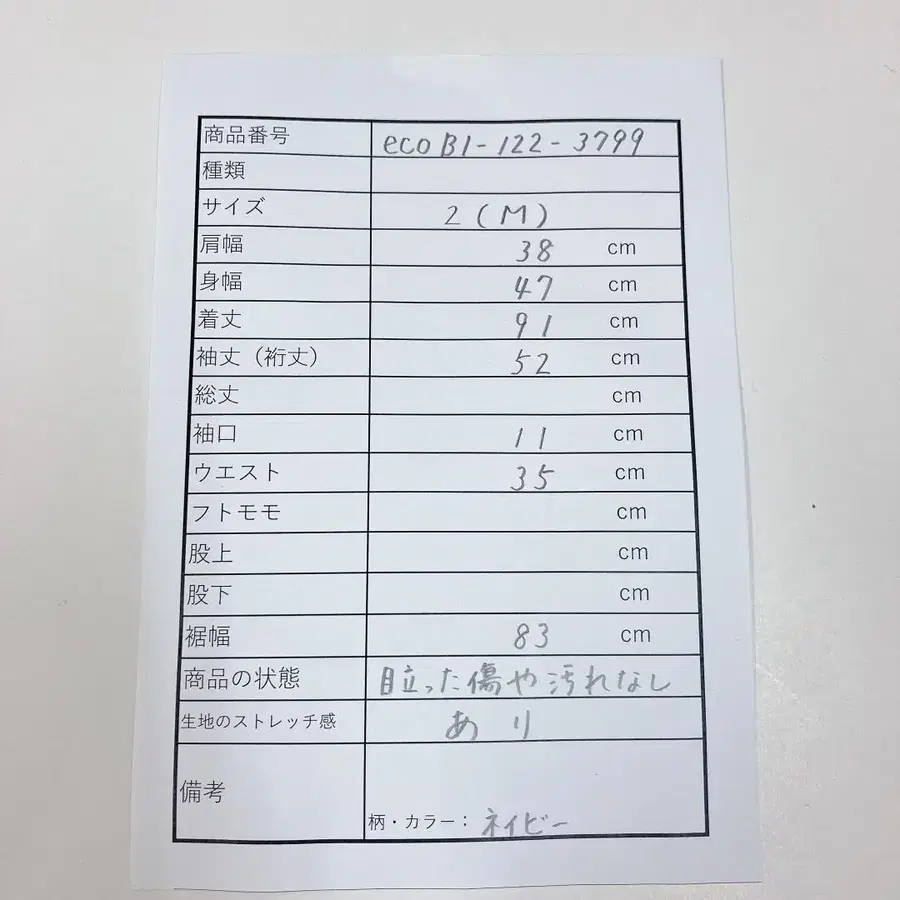 商品番号 eco B1-122-3799
種類
サイズ 2(M)
肩幅 38 cm
身幅 47 cm
着丈 91 cm
袖丈（裄丈） 52 cm
総丈 cm
袖口 11 cm
ウエスト 35 cm
フトモモ cm
股上 cm
股下 cm
裾幅 83 cm
商品の状態 目立った傷や汚れなし
生地のストレッチ感 あり
備考
柄・カラー： ネイビー